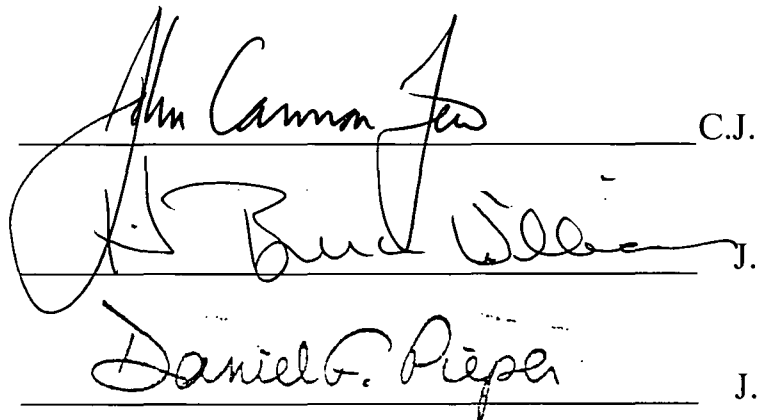 John Cannon Few C.J.
H. Bruce Williams J.
Daniel F. Pieper J.